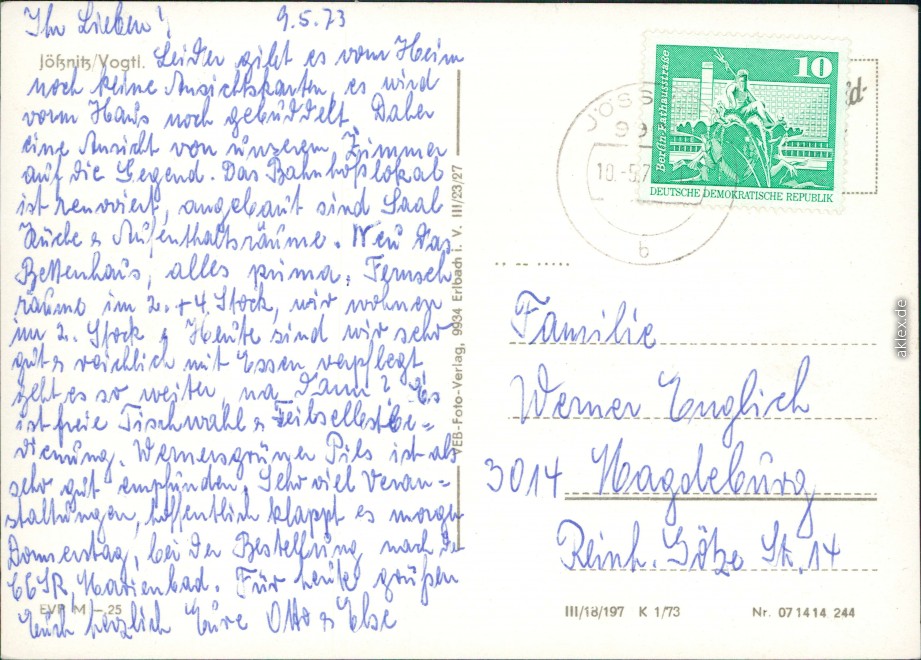 Ihr Lieben! 9.5.73
Jößnitz/Vogtl.
Leider gibt es vom Heim
noch keine Ansichtskarten, es wird
vorm Haus noch gebuddelt. Daher
eine Ansicht von unserem Zimmer
auf die Gegend. Das Bahnhofslokal
ist renoviert, angebaut sind Saal
Küche & Aufenthaltsräume. Neu das
Bettenhaus, alles prima, Fernseh
räume im 2. + 4. Stock, wir wohnen
im 2. Stock. Heute sind wir sehr
gut & reichlich mit Essen verpflegt,
geht es so weiter, na dann? Es
ist freie Tischwahl & Teilselbstbe-
dienung. Wernersgrüner Pils ist als
sehr gut empfunden. Sehr viel Veran-
staltungen, hoffentlich klappt es morgen
Donnerstag, bei der Bestellung nach der
ČSSR, Marienbad. Für heute grüßen
Euch herzlich Eure Otto & Else
EVP M -.25
VEB-Foto-Verlag, 9934 Erlbach i. V. III/23/27
JÖSS
99
10.-5.7
b
10
Berlin-Rathausstraße
DEUTSCHE DEMOKRATISCHE REPUBLIK
Familie
Werner Englich
3014 Magdeburg
Reinh. Götze Str. 14
III/18/197 K 1/73 Nr. 071414 244
aklex.de